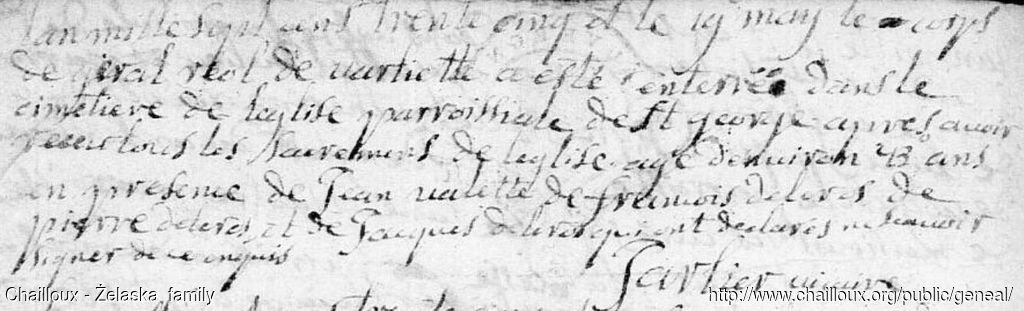 lan mille sept cens trente cinq et le 19 may le corps
de geral reol de vartiette a esté enterré dans le
cimetiere de leglise parroissiale de St george apres avoir
receu tous les sacremens de leglise agé denviron 43 ans
en presence de Jean valette de francois deleres de
pierre deleres et de Jacques deleres qui ont declarés ne scavoir
signer de ce enquis
Tarlier vicaire
Chailloux - Želaska family
http://www.chailloux.org/public/geneal/